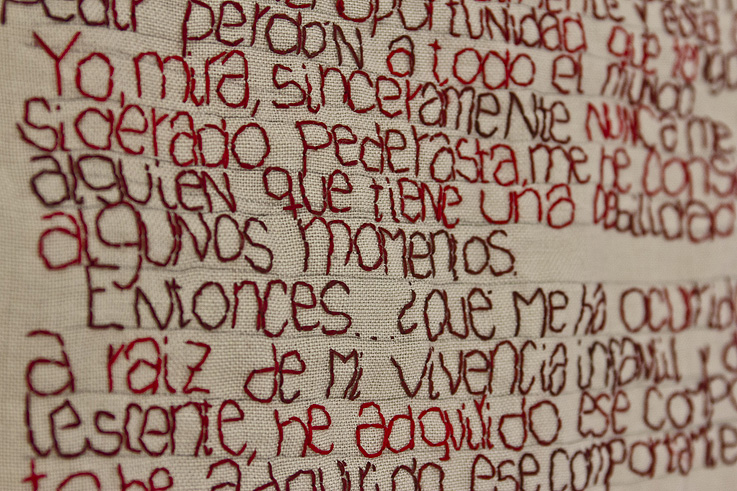 pedir perdón a todo el mundo
Yo, mira, sinceramente NUNCA me
siderado pederasta, me he cons
alguien que tiene una debilidad
algunos momentos.
Entonces... ¿qué me ha ocurrid
a raiz de mi vivencia infantil y a
lescente, he adquirido ese comp
to he adquirido ese comportamie